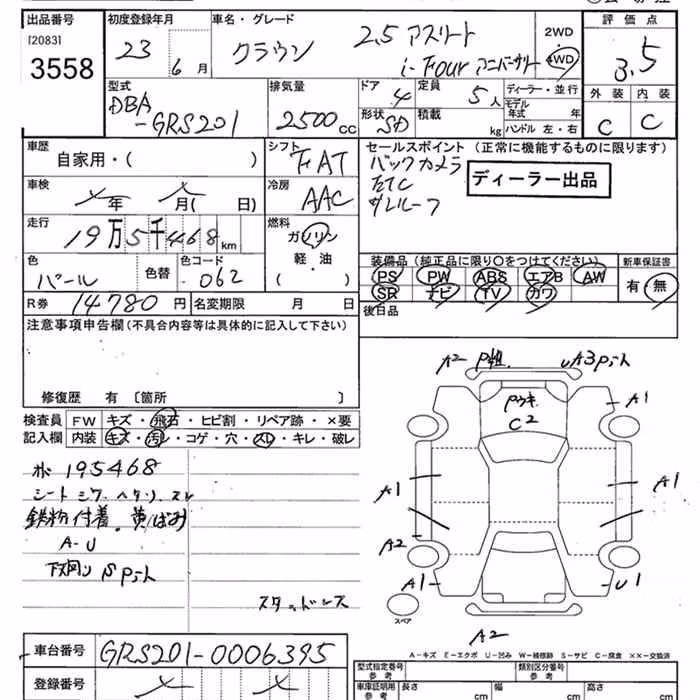 出品番号 初度登録年月 車名・グレード 2WD 評価点
[2083]
3558 23 6月 クラウン 2.5 アスリート 4WD 3.5
i-Four アニバーサリー
型式 排気量 ドア 定員 ディーラー・並行 外装 内装
DBA 4 5人 モデル年式 年
-GRS201 2500cc 形状 SD 積載 kg ハンドル 左・右 C C
車歴 シフト セールスポイント (正常に機能するものに限ります)
自家用・( ) FAT バックカメラ
車検 冷房 ETC ディーラー出品
年 月( 日) AAC サンルーフ
走行 燃料
19万5千468km ガソリン
軽・油
( )
装備品(純正品に限り○をつけてください) 新車保証書
色 色替 色コード PS PW ABS エアB AW 有・無
パール 062 SR ナビ TV カワ
R券 14780円 名変期限 月 日 後日品
注意事項申告欄(不具合内容等は具体的に記入して下さい)
修復歴 有 〔箇所 〕
検査員 FW キズ・飛石・ヒビ割・リペア跡・×要
記入欄 内装 キズ・汚レ・コゲ・穴・スレ・キレ・破レ
195468
シート シワ ヘタリ スレ
鉄粉付着 黄ばみ
A-U
下廻り Sアト
スタッドレス
A2 P粗 UA3 Pアト
Pウキ
C2
A1
A1 A1
A2
A1 U1
スペア
A2
A-キズ E-エクボ U-凹み W-補修跡 S-サビ C-腐食 ××-交換済
車台番号 GRS201-0006395
登録番号
型式指定番号 参考 類別区分番号 参考
車庫証明用 参考 長さ cm 幅 cm 高さ cm